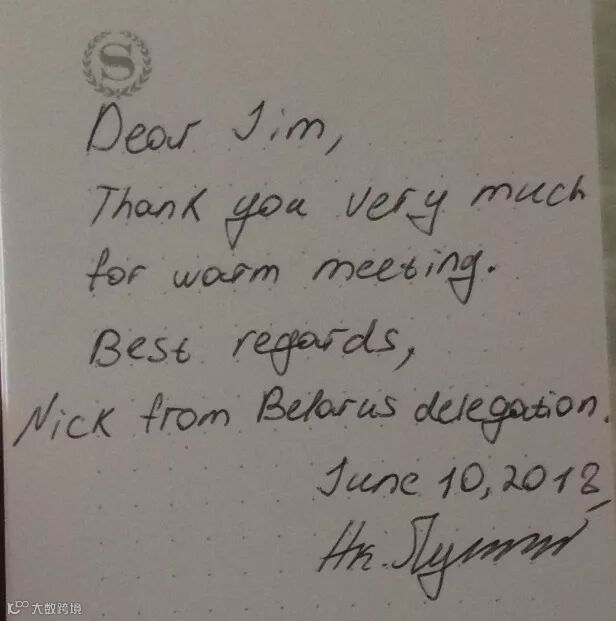 S
Dear Jim,
Thank you very much
for warm meeting.
Best regards,
Nick from Belarus delegation.
June 10, 2018
大数跨境